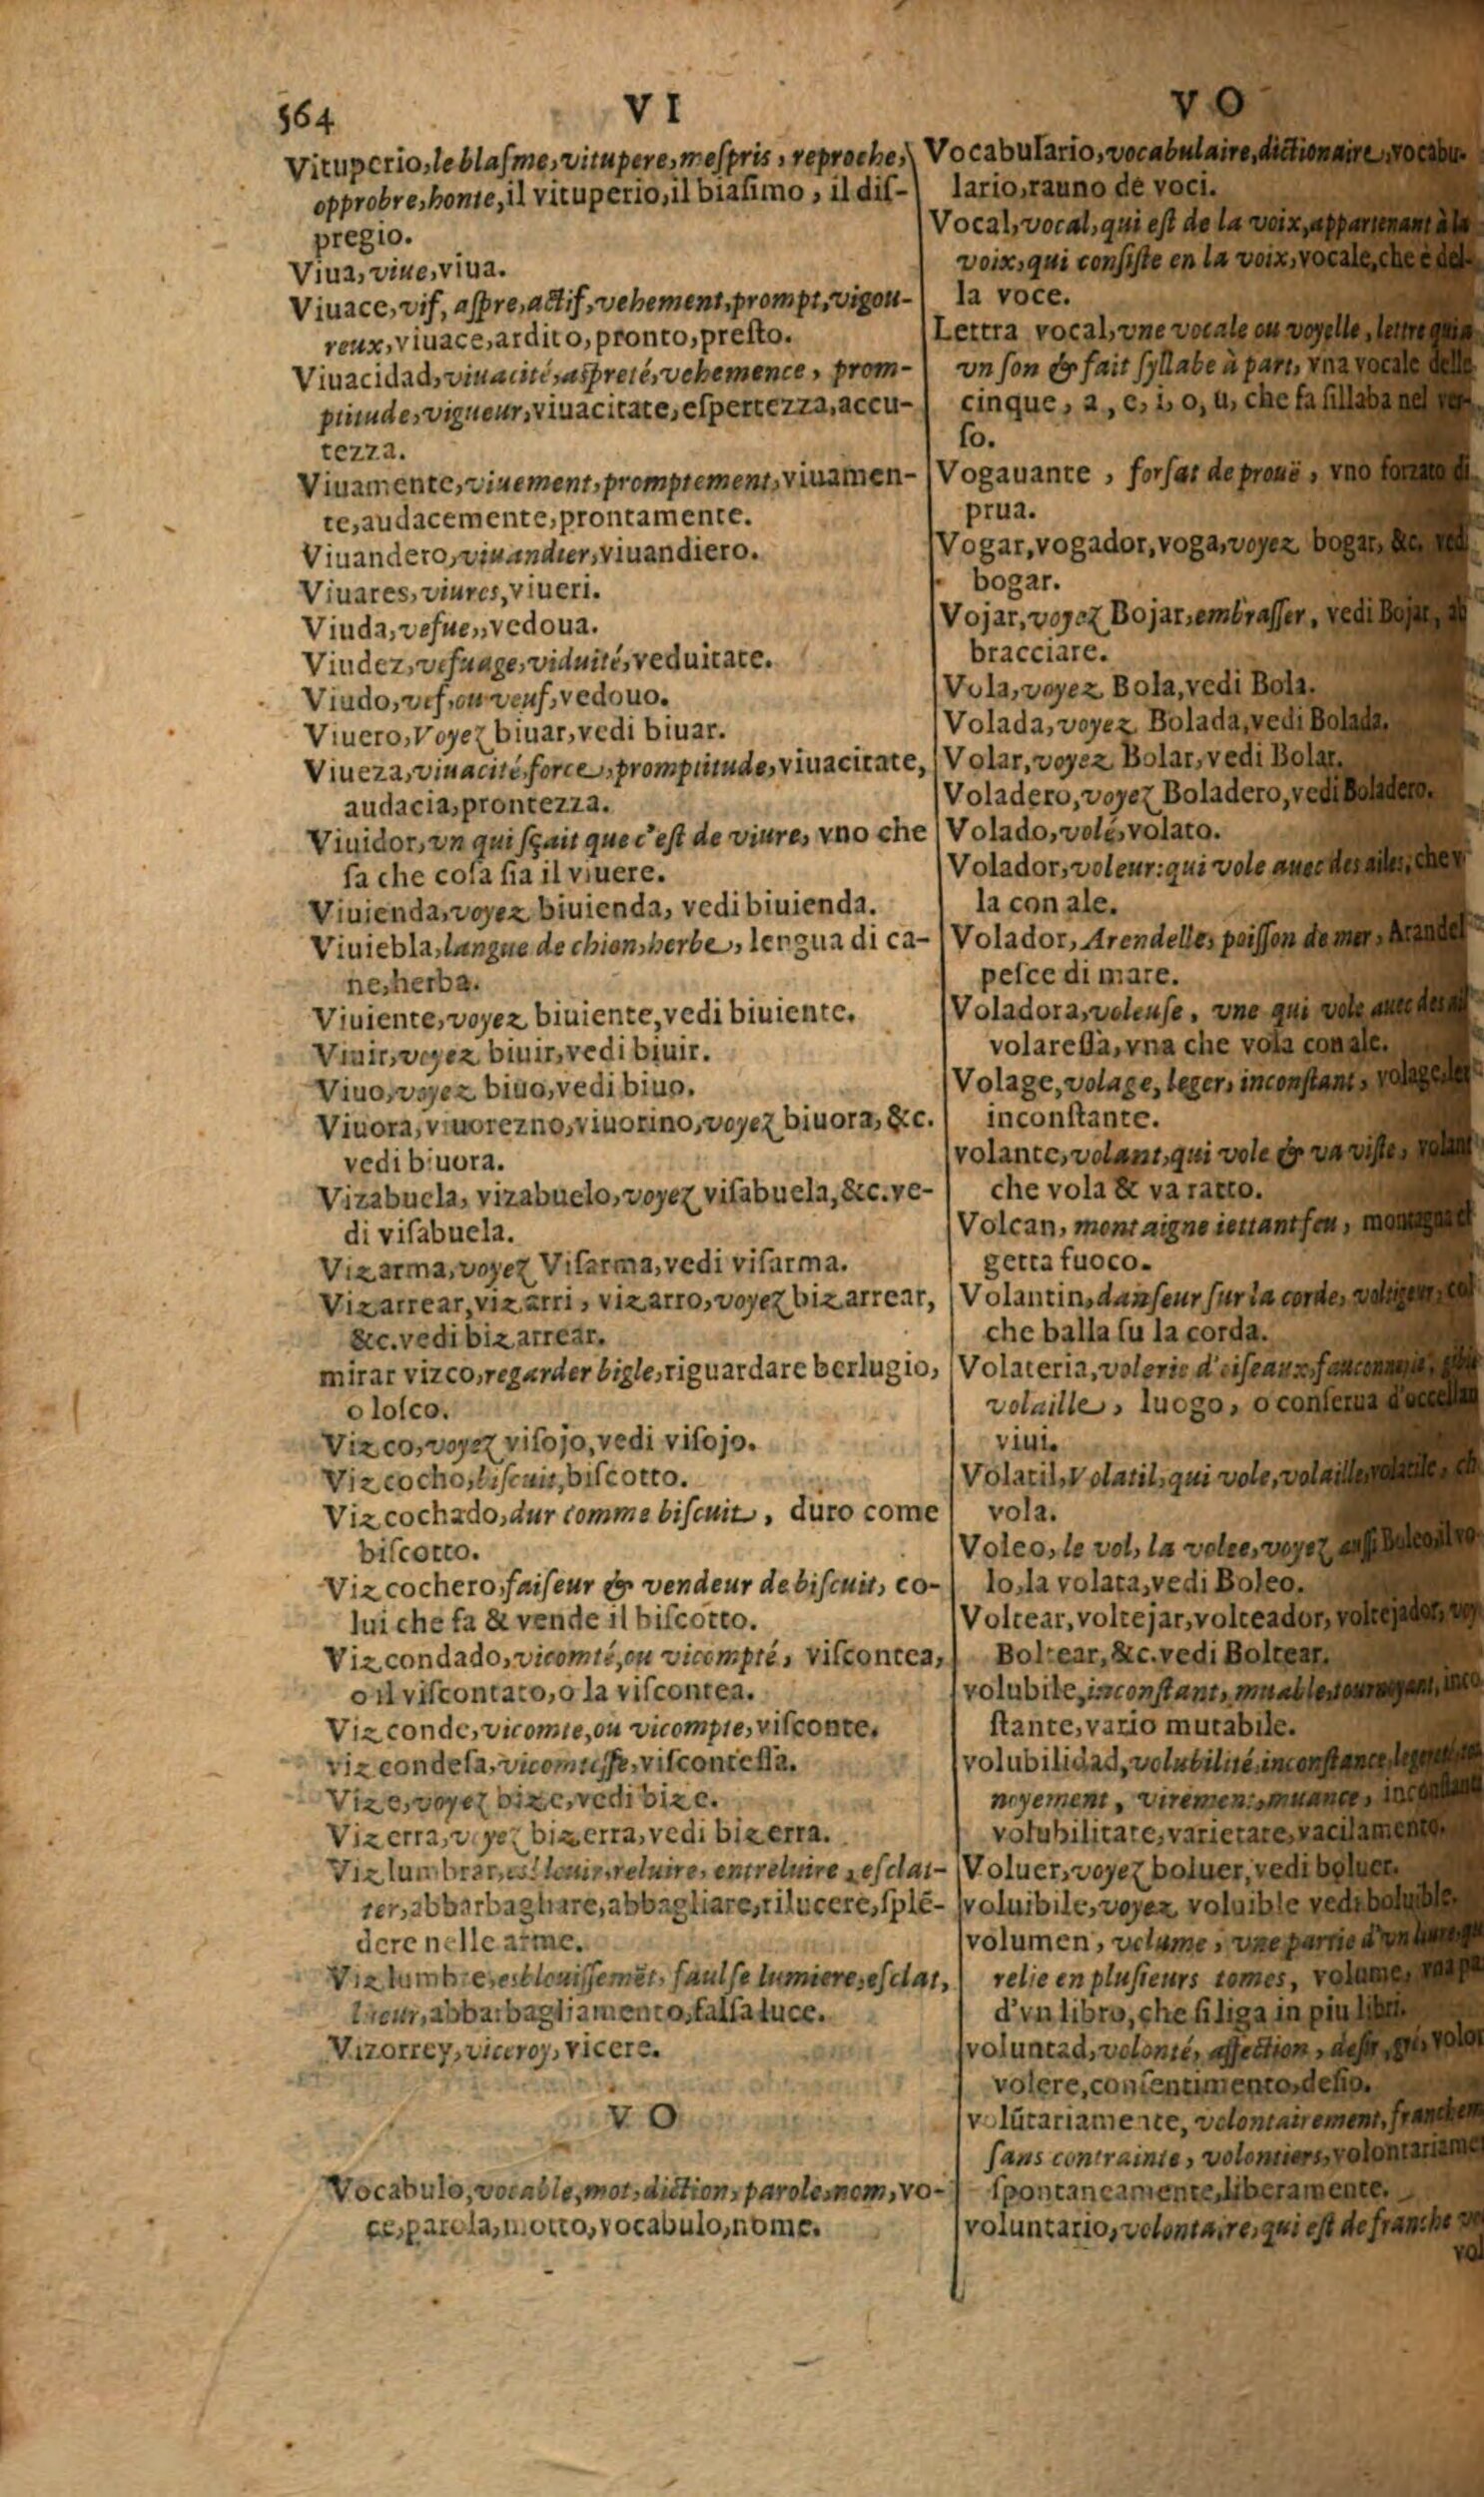 564
VI
VO
Vituperio, le blaſme, vitupere, meſpris, reproche,
opprobre, honte, il vituperio, il biaſimo, il diſ-
pregio.
Viua, viue, viua.
Viuace, vif, aſpre, actif, vehement, prompt, vigou-
reux, viuace, ardito, pronto, preſto.
Viuacidad, viuacité, aſpreté, vehemence, prom-
ptitude, vigueur, viuacitate, eſpertezza, accu-
tezza.
Viuamente, viuement, promptement, viuamen-
te, audacemente, prontamente.
Viuandero, viuandier, viuandiero.
Viuares, viures, viueri.
Viuda, vefue,, vedoua.
Viudez, vefuage, viduité, veduitate.
Viudo, vef, ou veuf, vedouo.
Viuero, Voyez biuar, vedi biuar.
Viueza, viuacité, force, promptitude, viuacitate,
audacia, prontezza.
Viuidor, vn qui ſçait que c'eſt de viure, vno che
ſa che coſa ſia il viuere.
Viuienda, voyez biuienda, vedi biuienda.
Viuiebla, langue de chien, herbe, lengua di ca-
ne, herba.
Viuiente, voyez biuiente, vedi biuiente.
Viuir, voyez biuir, vedi biuir.
Viuo, voyez biuo, vedi biuo.
Viuora, viuorezno, viuorino, voyez biuora, &c.
vedi biuora.
Vizabuela, vizabuelo, voyez viſabuela, &c. ve-
di viſabuela.
Vizarma, voyez Viſarma, vedi viſarma.
Vizarrear, vizarri, vizarro, voyez bizarrear,
&c. vedi bizarrear.
mirar vizco, regarder bigle, riguardare berlugio,
o loſco.
Vizco, voyez viſojo, vedi viſojo.
Vizcocho, biſcuit, biſcotto.
Vizcochado, dur comme biſcuit, duro come
biſcotto.
Vizcochero, faiſeur & vendeur de biſcuit, co-
lui che fa & vende il biſcotto.
Vizcondado, vicomté, ou vicompté, viſcontea,
o il viſcontato, o la viſcontea.
Vizconde, vicomte, ou vicompte, viſconte.
vizcondeſa, vicomteſſe, viſconteſſa.
Vize, voyez bize, vedi bize.
Vizerra, voyez bizerra, vedi bizerra.
Vizlumbrar, esblouir, reluire, entreluire, eſclat-
ter, abbarbagliare, abbagliare, rilucere, ſplē-
dere nelle arme.
Vizlumbre, esblouiſſemēt, faulſe lumiere, eſclat,
lueur, abbarbagliamento, falſa luce.
Vizorrey, viceroy, vicere.
VO
Vocabulo, vocable, mot, diction, parole, nom, vo-
ce, parola, motto, vocabulo, nome.
Vocabulario, vocabulaire, dictionaire, vocabu-
lario, rauno de voci.
Vocal, vocal, qui eſt de la voix, appartenant à la
voix, qui conſiſte en la voix, vocale, che è del-
la voce.
Lettra vocal, vne vocale ou voyelle, lettre qui a
vn ſon & fait ſyllabe à part, vna vocale delle
cinque, a, e, i, o, u, che fa ſillaba nel ver-
ſo.
Vogauante, forſat de prouë, vno forzato di
prua.
Vogar, vogador, voga, voyez bogar, &c. vedi
bogar.
Vojar, voyez Bojar, embraſſer, vedi Bojar, ab
bracciare.
Vola, voyez Bola, vedi Bola.
Volada, voyez Bolada, vedi Bolada.
Volar, voyez Bolar, vedi Bolar.
Voladero, voyez Boladero, vedi Boladero.
Volado, volé, volato.
Volador, voleur: qui vole auec des ailes, che v
la con ale.
Volador, Arendelle, poiſſon de mer, Arandel
peſce di mare.
Voladora, voleuſe, vne qui vole auec des ail
volareſſa, vna che vola con ale.
Volage, volage, leger, inconſtant, volage, le
inconſtante.
volante, volant, qui vole & va viſte, volant
che vola & va ratto.
Volcan, montaigne iettant feu, montagna ch
getta fuoco.
Volantin, danſeur ſur la corde, voltigeur, col
che balla ſu la corda.
Volateria, volerie d'oiſeaux, fauconnerie,
volaille, luogo, o conſerua d'occellan
viui.
Volatil, Volatil, qui vole, volaille, volatile, ch
vola.
Voleo, le vol, la volee, voyez auſſi Boleo, il vo-
lo, la volata, vedi Boleo.
Voltear, voltejar, volteador, voltejador, voy
Boltear, &c. vedi Boltear.
volubile, inconſtant, muable, tournoyant, inco
ſtante, vario mutabile.
volubilidad, volubilité, inconſtance, legereté,
noyement, virement, muance, inconſtanti
volubilitate, varietate, vacilamento.
Voluer, voyez boluer, vedi boluer.
voluibile, voyez voluible vedi boluible.
volumen, volume, vne partie d'vn liure, qu
relie en pluſieurs tomes, volume, vna pa
d'vn libro, che ſi liga in piu libri.
voluntad, volonté, affection, deſir, gré, volon
volere, conſentimento, deſio.
volūtariamente, volontairement, franchem
ſans contrainte, volontiers, volontariame
ſpontaneamente, liberamente.
voluntario, volontaire, qui eſt de franche vo
vol